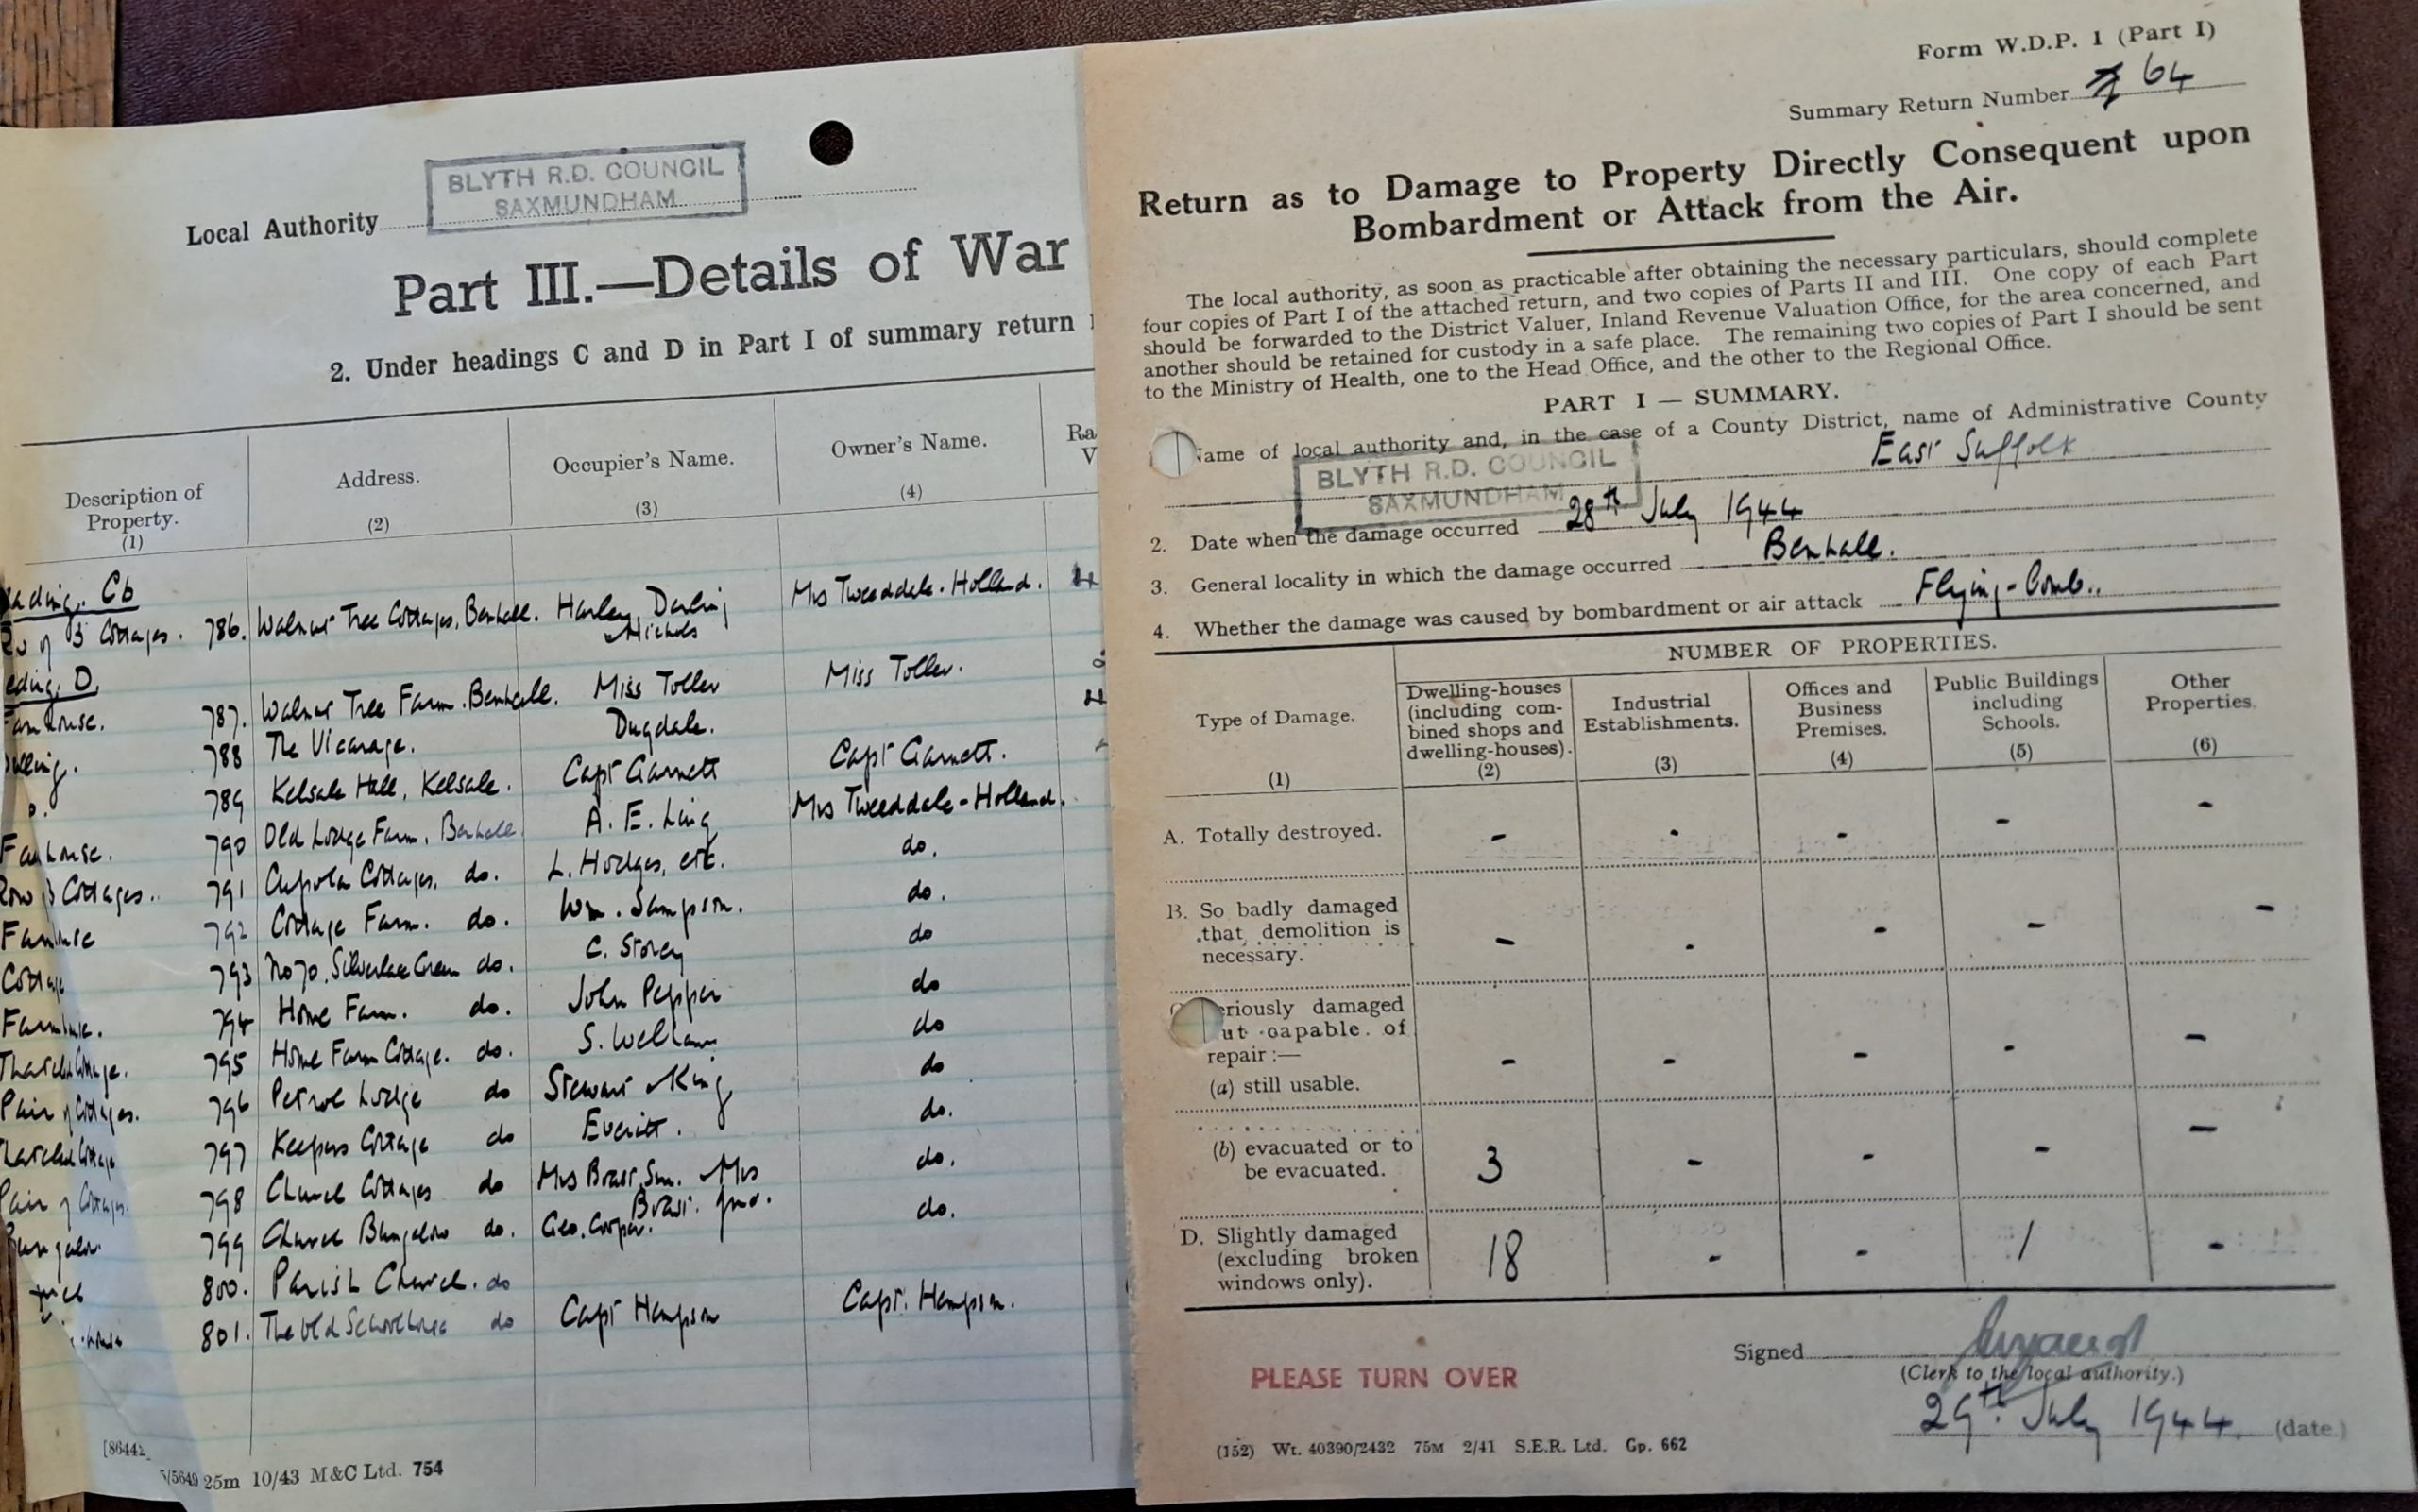 Local Authority
BLYTH R.D. COUNCIL
SAXMUNDHAM
Part III.—Details of War
2. Under headings C and D in Part I of summary return
Description of Property. (1)
Address. (2)
Occupier's Name. (3)
Owner's Name. (4)
Ra
V
Cb
3 Cottages. 786. Walnut Tree Cottages, Benhall. Harley Darling Nichols Mrs Tweeddale-Holland.
D.
787. Walnut Tree Farm. Benhall. Miss Toller Miss Toller.
788 The Vicarage. Dugdale.
789 Kelsale Hall, Kelsale. Capt Garnett Capt Garnett.
790 Old Lodge Farm, Benhall A. E. Ling Mrs Tweeddale-Holland.
Row 3 Cottages. 791 Cupola Cottages. do. L. Hodges, etc. do.
792 Cottage Farm. do. Wm. Sampson. do.
Cottage 793 No 70. Silverlace Green do. C. Storey do
794 Home Farm. do. John Pepper do
795 Home Farm Cottage. do. S. do
Pair of Cottages. 796 Petrol Lodge do Stewart King do
797 Keepers Cottage do Everitt. do.
Pair of Cottages. 798 Church Cottages do Mrs Brast Sen. Mrs Brast. Jnr. do.
799 Church Bungalow do. Geo. Cooper. do.
800. Parish Church. do
801. The Old School House do Capt Hempson Capt. Hempson.
[8644
/5649 25m 10/43 M&C Ltd. 754
Form W.D.P. 1 (Part I)
Summary Return Number 64
Return as to Damage to Property Directly Consequent upon
Bombardment or Attack from the Air.
The local authority, as soon as practicable after obtaining the necessary particulars, should complete
four copies of Part I of the attached return, and two copies of Parts II and III. One copy of each Part
should be forwarded to the District Valuer, Inland Revenue Valuation Office, for the area concerned, and
another should be retained for custody in a safe place. The remaining two copies of Part I should be sent
to the Ministry of Health, one to the Head Office, and the other to the Regional Office.
PART I — SUMMARY.
Name of local authority and, in the case of a County District, name of Administrative County
BLYTH R.D. COUNCIL
SAXMUNDHAM
East Suffolk
2. Date when the damage occurred 28th July 1944
3. General locality in which the damage occurred Benhall.
4. Whether the damage was caused by bombardment or air attack Flying-bomb..
NUMBER OF PROPERTIES.
Type of Damage. (1)
Dwelling-houses (including combined shops and dwelling-houses). (2)
Industrial Establishments. (3)
Offices and Business Premises. (4)
Public Buildings including Schools. (5)
Other Properties. (6)
A. Totally destroyed. - - - - -
B. So badly damaged that demolition is necessary. - - - - -
eriously damaged
ut capable of
repair :—
(a) still usable. - - - - -
(b) evacuated or to be evacuated. 3 - - - -
D. Slightly damaged (excluding broken windows only). 18 - - 1 -
Signed
(Clerk to the local authority.)
29th July 1944. (date.)
PLEASE TURN OVER
(152) Wt. 40390/2432 75M 2/41 S.E.R. Ltd. Gp. 662